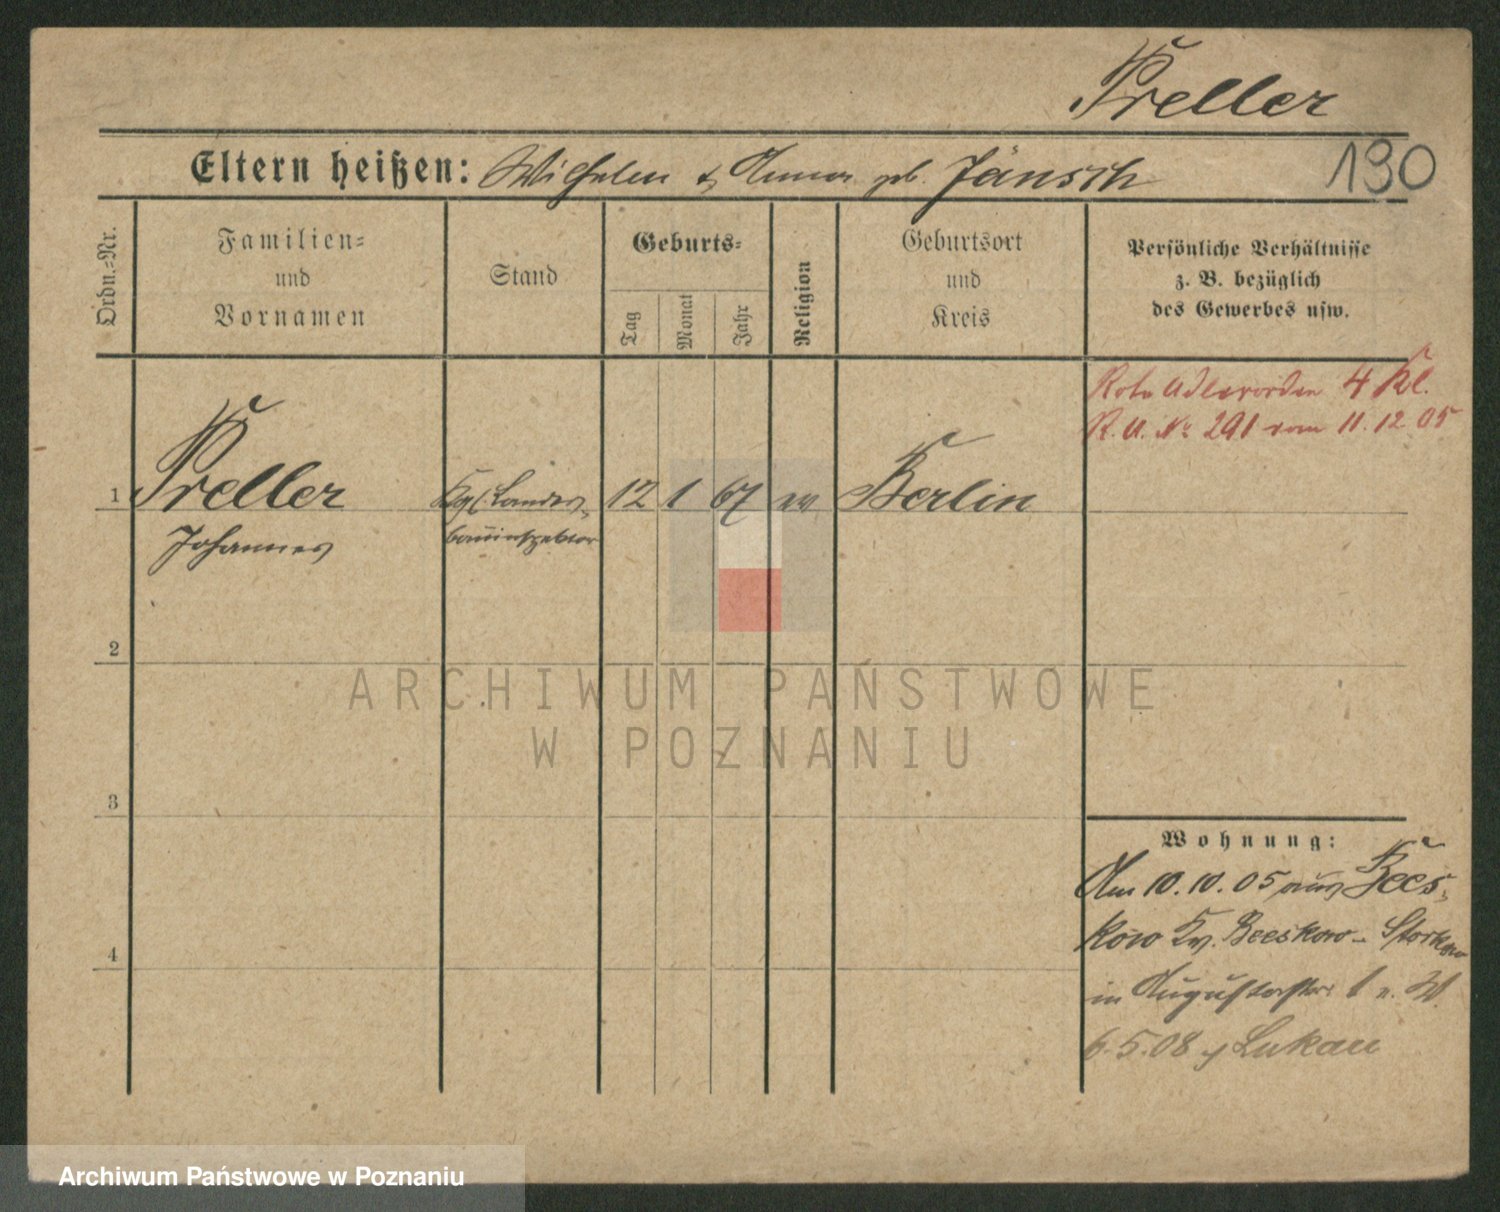 Preller
Eltern heißen: Wilhelm & Anna geb. Jänsch
190
Ordn.-Nr.
Familien-
und
Vornamen
Stand
Geburts-
Tag
Monat
Jahr
Religion
Geburtsort
und
Kreis
Persönliche Verhältnisse
z. B. bezüglich
des Gewerbes usw.
Rote Adlerorden 4 Kl.
R. U. No 291 vom 11.12 05
1 Preller Kgl. Landes- 12 1 67 ev Berlin
Johannes bauinspektor
2
3
4
Wohnung:
Am 10.10.05 aus Bees-
kow Kr. Beeskow-Storkow
in Augustastr 1 n. W.
6.5.08 Lukau
ARCHIWUM PAŃSTWOWE
W POZNANIU
Archiwum Państwowe w Poznaniu